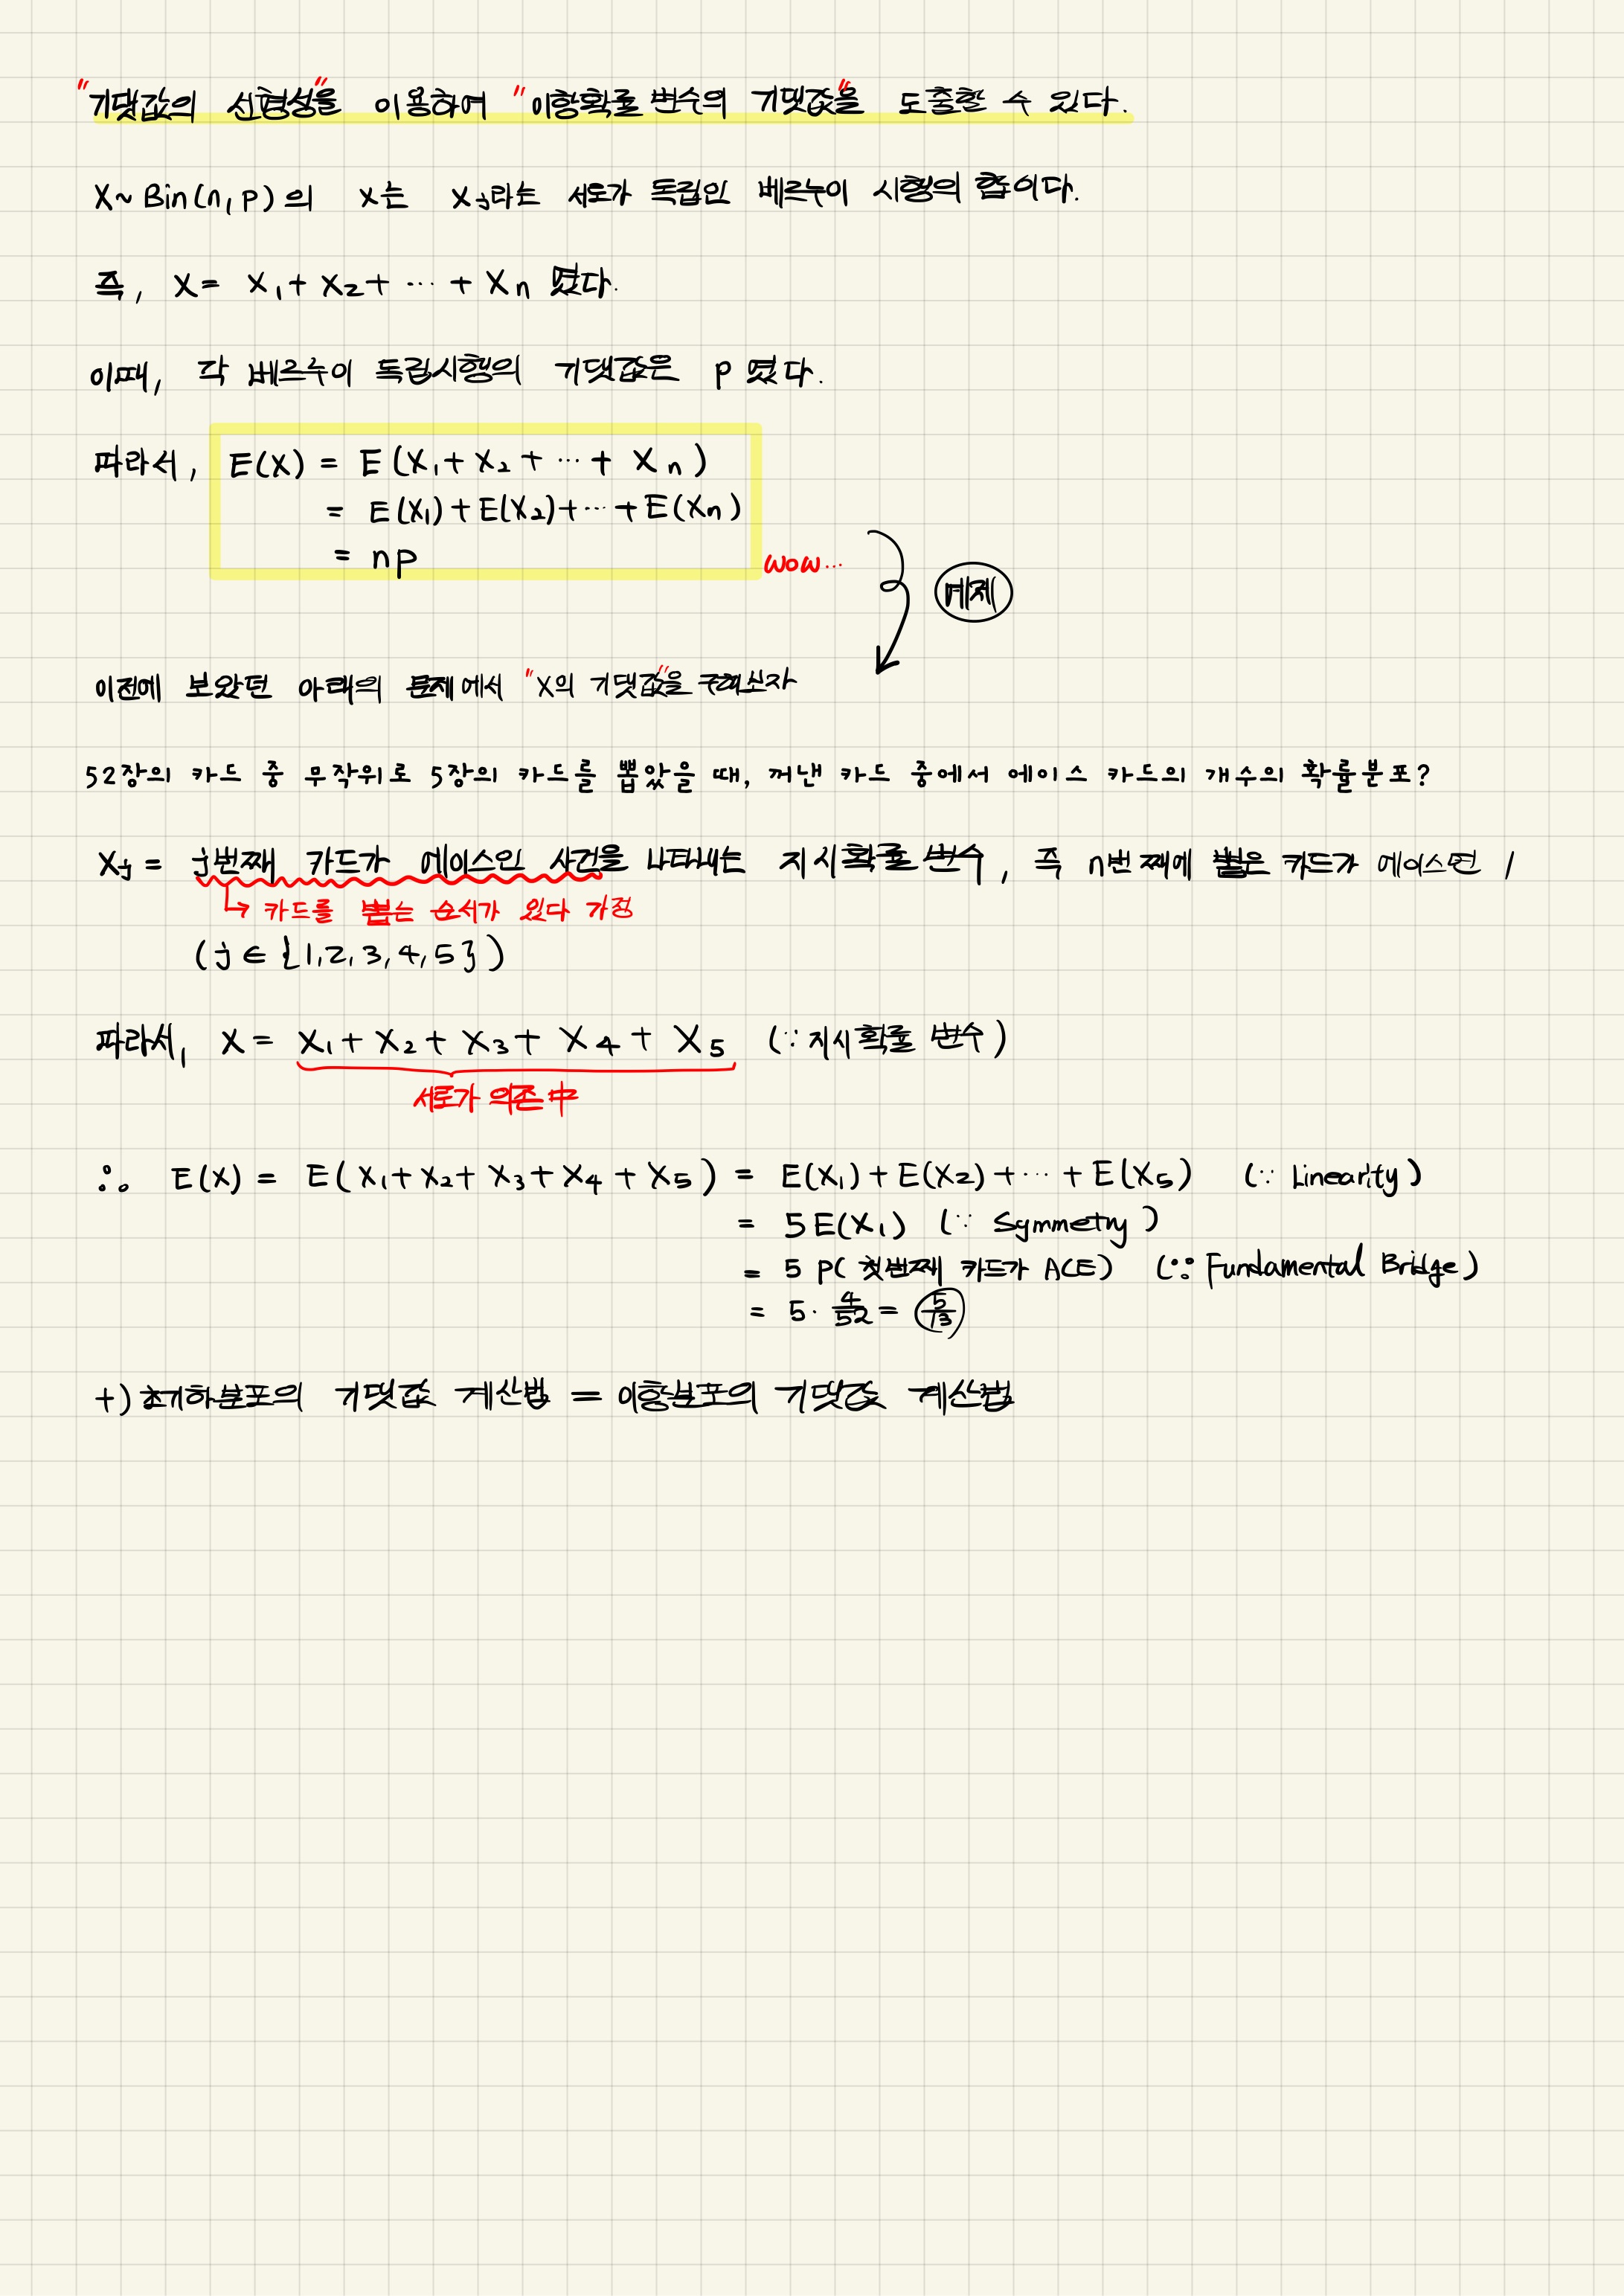 "기댓값의 선형성"을 이용하여 "이항확률 변수의 기댓값"을 도출할 수 있다.
X~Bin(n, p)의 X는 Xj라는 서로가 독립인 베르누이 시행의 합이다.
즉, X = X1 + X2 + ... + Xn 였다.
이때, 각 베르누이 독립시행의 기댓값은 p 였다.
따라서, E(X) = E(X1 + X2 + ... + Xn)
= E(X1) + E(X2) + ... + E(Xn)
= np
wow...
예제
이전에 보았던 아래의 문제에서 "X의 기댓값"을 구해보자
52장의 카드 중 무작위로 5장의 카드를 뽑았을 때, 꺼낸 카드 중에서 에이스 카드의 개수의 확률분포?
Xj = j번째 카드가 에이스인 사건을 나타내는 지시확률 변수, 즉 n번 째에 뽑은 카드가 에이스면 1
↳ 카드를 뽑는 순서가 있다 가정
(j ∈ {1, 2, 3, 4, 5})
따라서, X = X1 + X2 + X3 + X4 + X5 (∵ 지시확률 변수)
서로가 의존中
∴ E(X) = E(X1 + X2 + X3 + X4 + X5) = E(X1) + E(X2) + ... + E(X5) (∵ Linearity)
= 5E(X1) (∵ Symmetry)
= 5 P(첫번째 카드가 ACE) (∵ Fundamental Bridge)
= 5 · 4/52 = 5/13
+) 초기하분포의 기댓값 계산법 = 이항분포의 기댓값 계산법